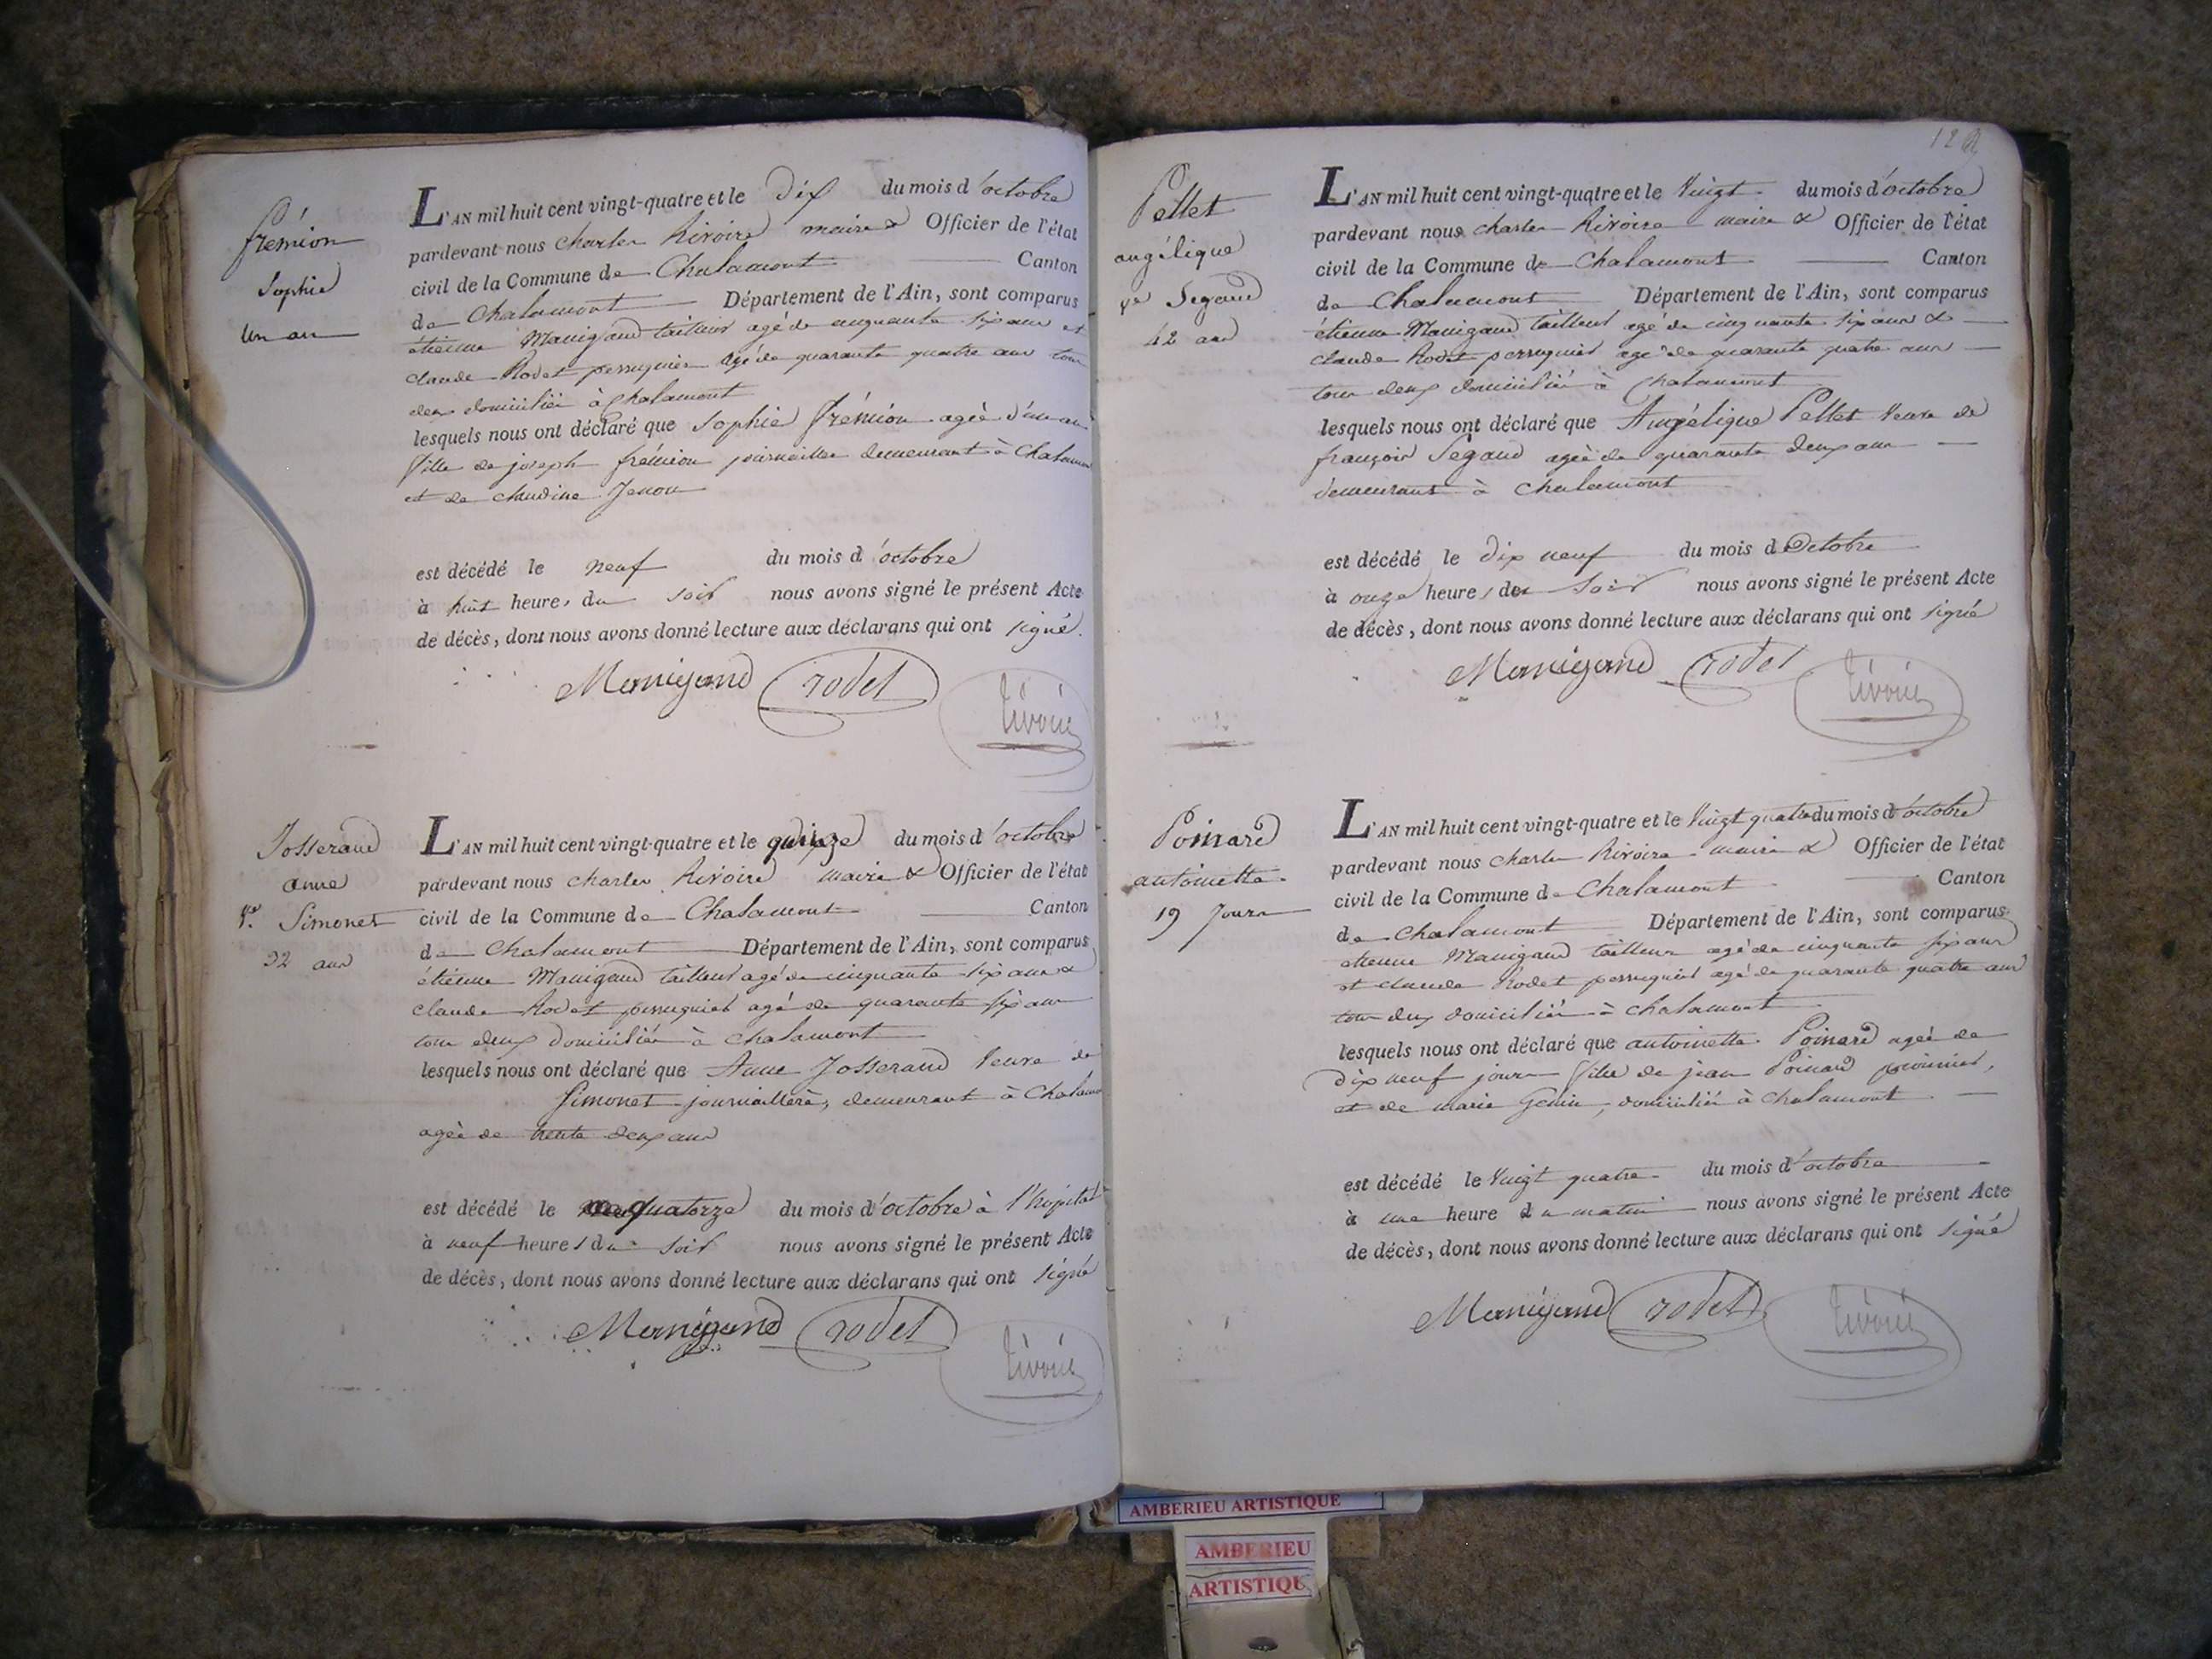 frémion
Sophie
un an
L'AN mil huit cent vingt-quatre et le Dix du mois d'octobre
pardevant nous charles Rivoire maire & Officier de l'état
civil de la Commune de Chalamont Canton
de Chalamont Département de l'Ain, sont comparus
étienne Manigand tailleur agé de cinquante six ans et
claude Rodet perruquier agé de quarante quatre ans tous
deux domiciliés à Chalamont
lesquels nous ont déclaré que Sophie frémion agée d'un an
fille de joseph frémion journalier demeurant à Chalamon
et de claudine
est décédé le neuf du mois d'octobre
à huit heures du soir nous avons signé le présent Acte
de décès, dont nous avons donné lecture aux déclarans qui ont signé.
Manigand rodet rivoire
Josserand
anne
Ve. Simonet
32 ans
L'AN mil huit cent vingt-quatre et le quinze du mois d'octobre
pardevant nous charles Rivoire maire & Officier de l'état
civil de la Commune de Chalamont Canton
de Chalamont Département de l'Ain, sont comparus
étienne Manigand tailleur agé de cinquante six ans &
claude Rodet perruquier agé de quarante six ans
tous deux domiciliés à Chalamont
lesquels nous ont déclaré que Anne Josserand Veuve de
Simonet journalière, demeurant à Chalamo
agée de trente deux ans
est décédé le quatorze du mois d'octobre à l'hopital
à neuf heures du soir nous avons signé le présent Acte
de décès, dont nous avons donné lecture aux déclarans qui ont signé
Manigand rodet rivoire
122
Pellet
angélique
ve Segaud
42 ans
L'AN mil huit cent vingt-quatre et le Vingt du mois d'octobre
pardevant nous charles Rivoire maire & Officier de l'état
civil de la Commune de Chalamont Canton
de Chalamont Département de l'Ain, sont comparus
étienne Manigand tailleur agé de cinquante six ans &
claude Rodet perruquier agé de quarante quatre ans
tous deux domiciliés à Chalamont
lesquels nous ont déclaré que Angélique Pellet Veuve de
françois Segaud agée de quarante deux ans
demeurant à Chalamont
est décédé le dix neuf du mois d'Octobre
à onze heures du Soir nous avons signé le présent Acte
de décès, dont nous avons donné lecture aux déclarans qui ont signé
Manigand rodet rivoire
Poinard
antoinette
19 Jours
L'AN mil huit cent vingt-quatre et le Vingt quatre du mois d'octobre
pardevant nous charles Rivoire maire & Officier de l'état
civil de la Commune de Chalamont Canton
de Chalamont Département de l'Ain, sont comparus
etienne Manigand tailleur agé de cinquante six ans
et claude Rodet perruquier agé de quarante quatre ans
tous deux domiciliés à Chalamont
lesquels nous ont déclaré que antoinette Poinard agée de
dix neuf jours fille de jean Poinard
et de marie Genin, domiciliés à Chalamont
est décédé le Vingt quatre du mois d'octobre
à une heure du matin nous avons signé le présent Acte
de décès, dont nous avons donné lecture aux déclarans qui ont signé
Manigand rodet rivoire
AMBERIEU ARTISTIQUE
AMBERIEU
ARTISTIQU